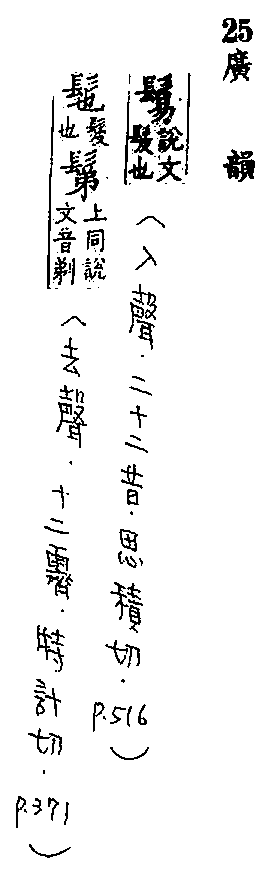 25 廣韻
鬄說文髲也（入聲．二十二昔．思積切．p.516）
髢髲也鬀上同說文音剃（去聲．十二霽．特計切．p.371）